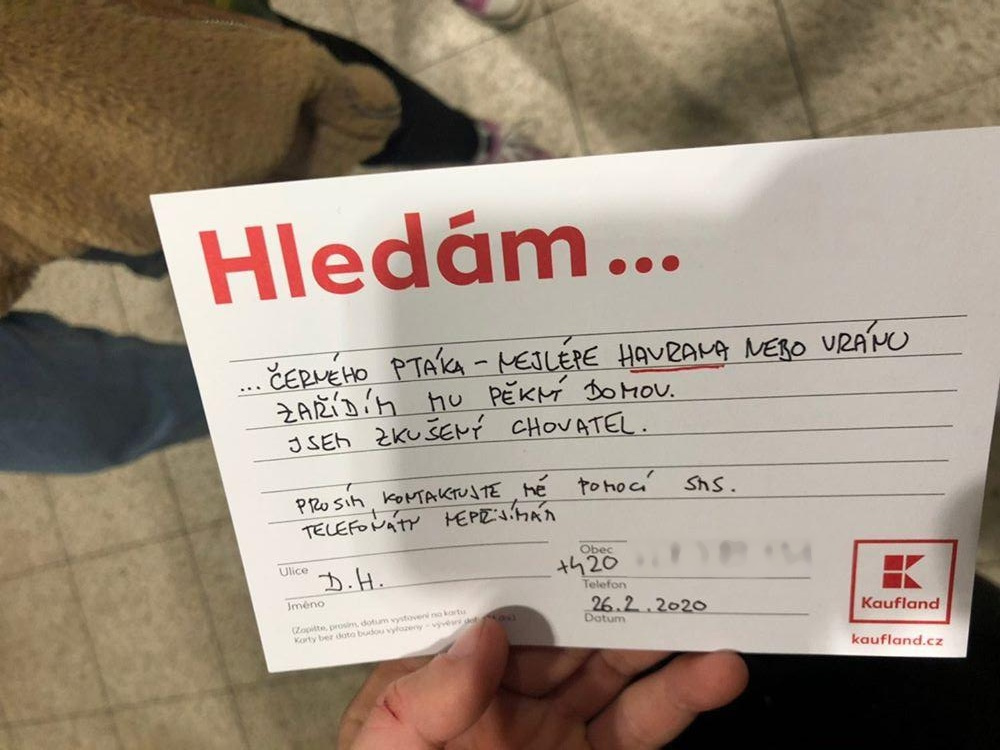 Hledám...
... ČERNÉHO PTÁKA - NEJLÉPE HAVRANA NEBO VRÁNU
ZAŘÍDÍM MU PĚKNÝ DOMOV.
JSEM ZKUŠENÝ CHOVATEL.
PROSÍM, KONTAKTUJTE MĚ POMOCÍ SMS.
TELEFONÁTY NEPŘIJÍMÁM
Ulice
Obec
D.H.
+420
Jméno
Telefon
26.2.2020
Datum
(Zapište, prosím, datum vystavení na kartu
Karty bez data budou vyřazeny – vývěsní
Kaufland
kaufland.cz